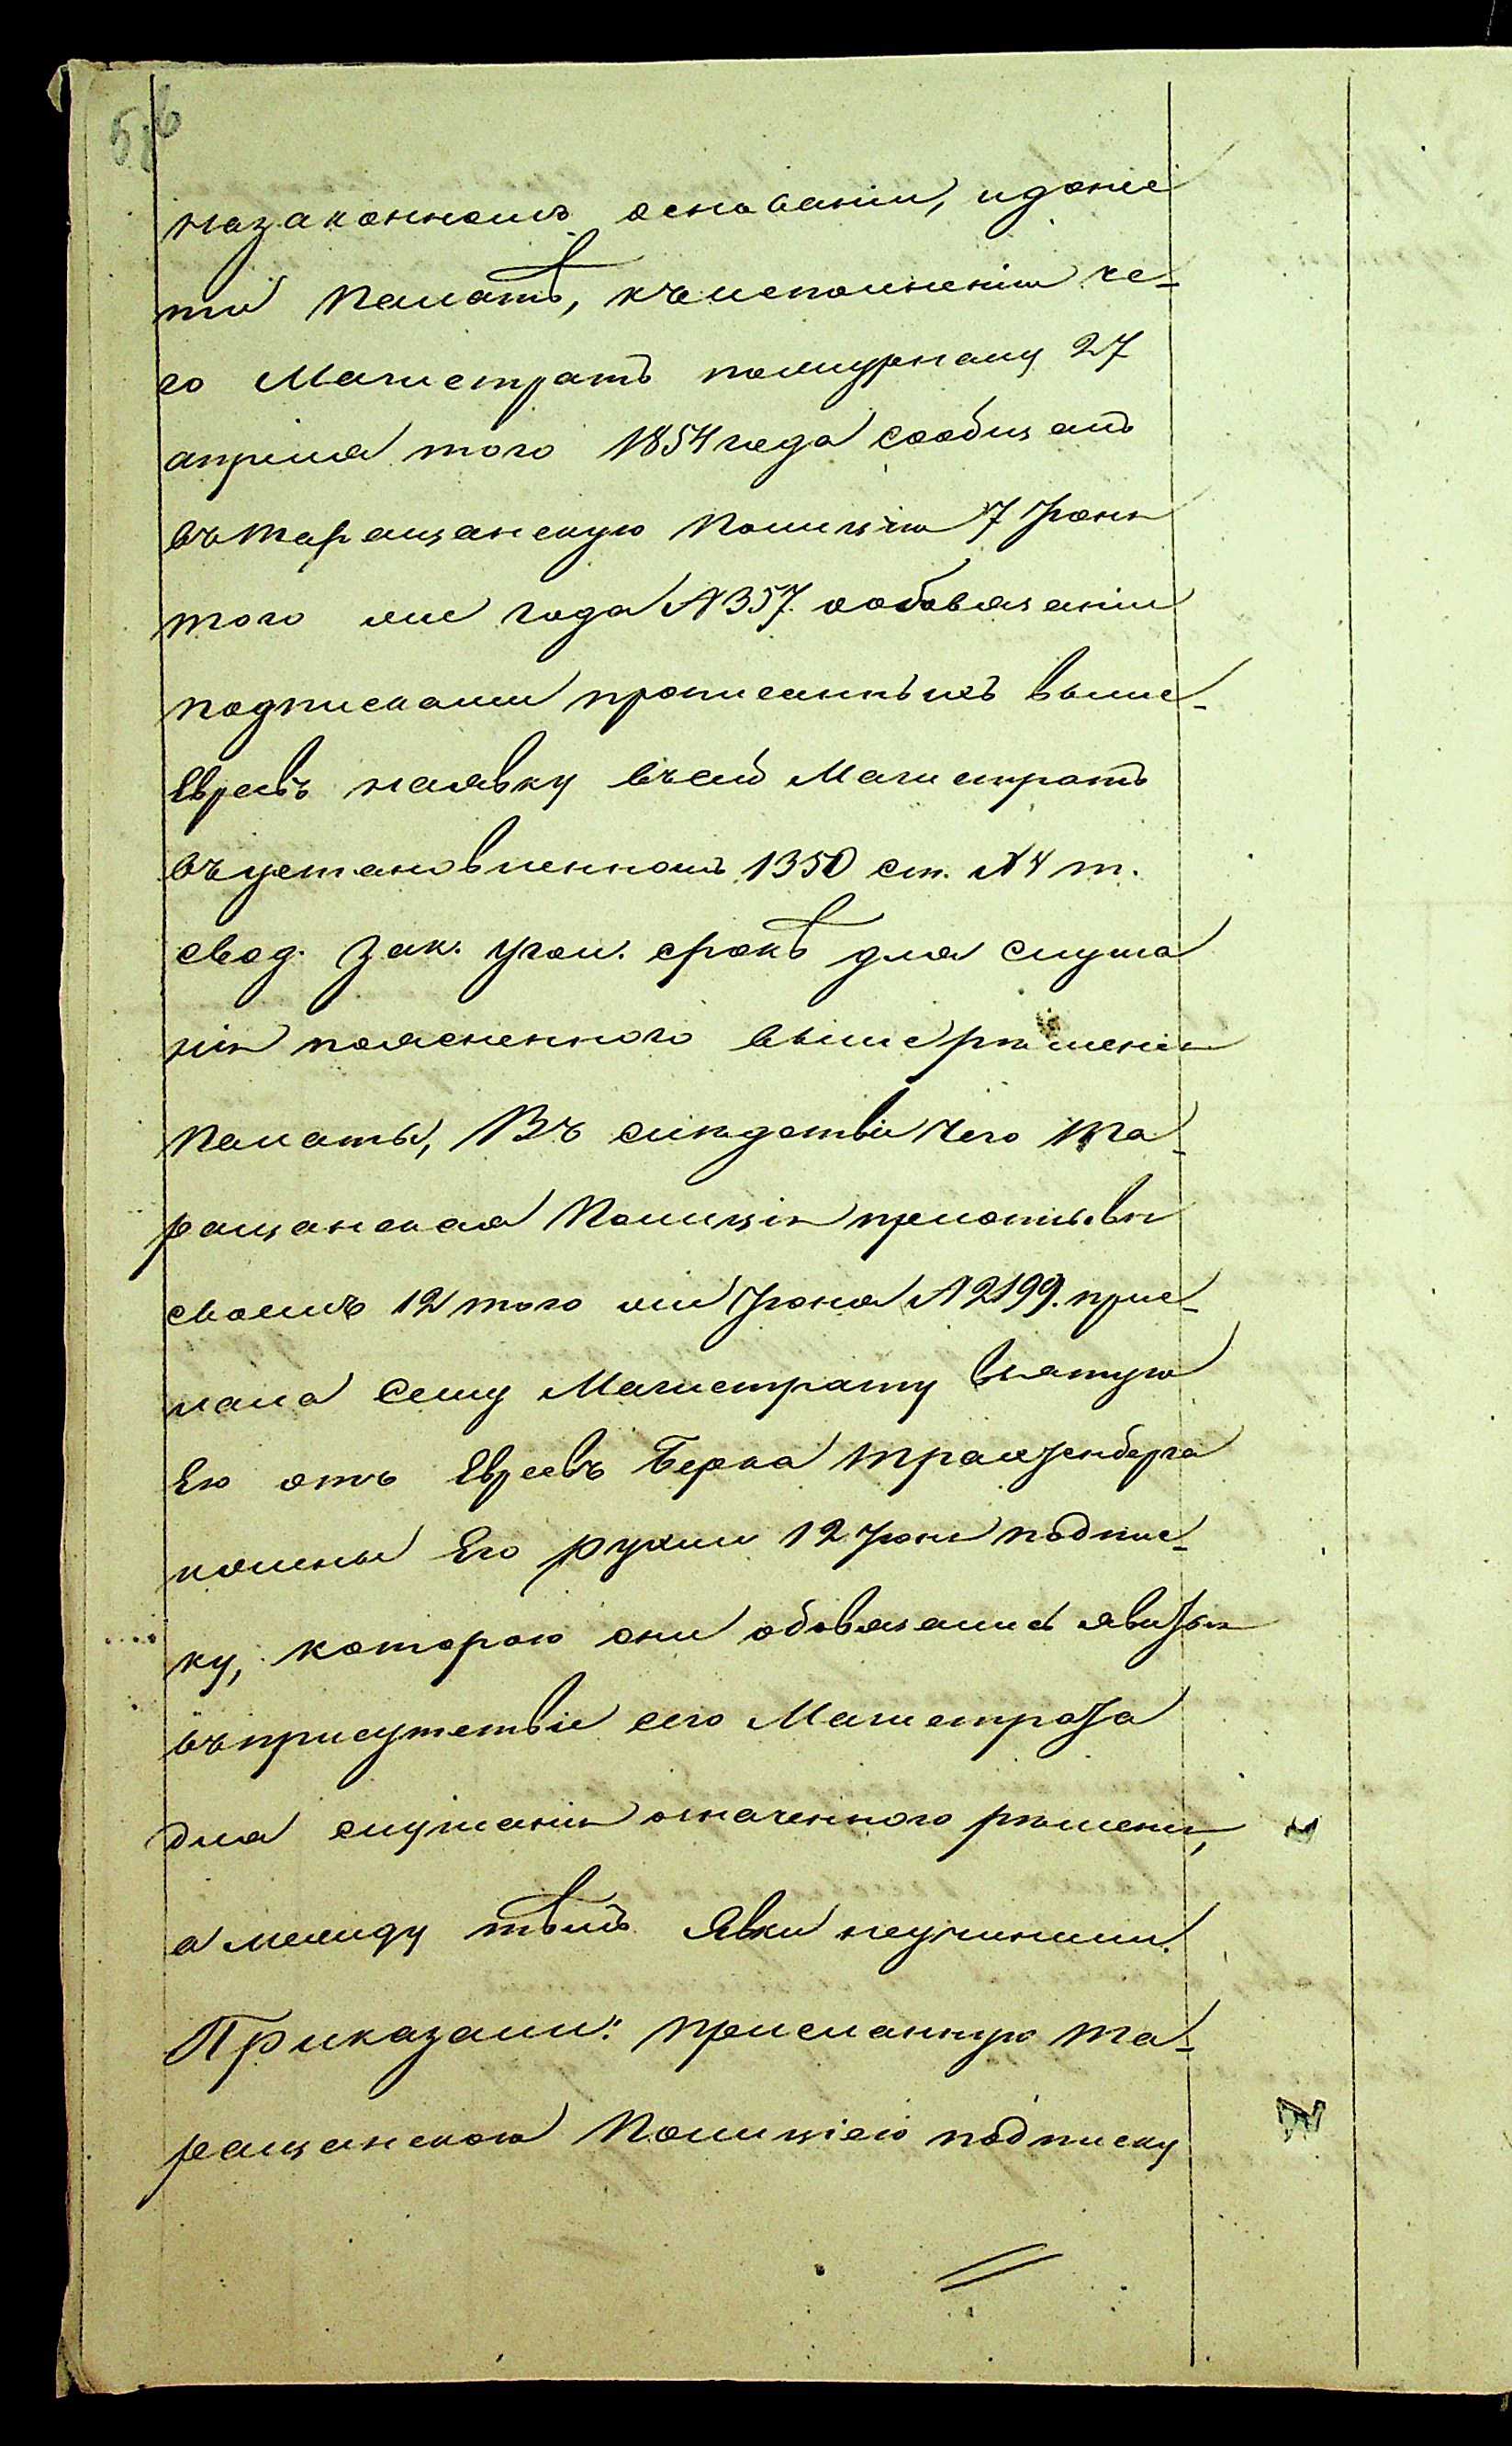 назаконномъ основаніи, идоне
ти Палатѣ, къисполненію че-
го Магистратъ пожурналу 27
апрѣля того 1854 года сообщалъ
въ таращанскую Полицію 7 Іюня
того же года № 357. ообовязаніи
подписками прописанныхъ выше-
Евреевъ наявку въсей Магистратъ
въустановленномъ 1350 ст. XV т.
свод. Зак. угол. срокѣ для слуша
нія поясненного выше рѣшенія
Палаты, Въ слѣдствіи чего та-
ращанская Полиція приотзывѣ
своемъ 12 того же Іюня № 2199. прис-
лала сему Магистрату взятую
Ею отъ Евреевъ Берка Тро
жены Его Рухли 12 Іюня подпис-
ку, которою они обовязались явится
въприсутствіе сего Магистрата
для слушанія означенного рѣшенія,
а между тѣмъ явки неучинили.
Приказали: присланную Та-
ращанскою Полиціею подписку